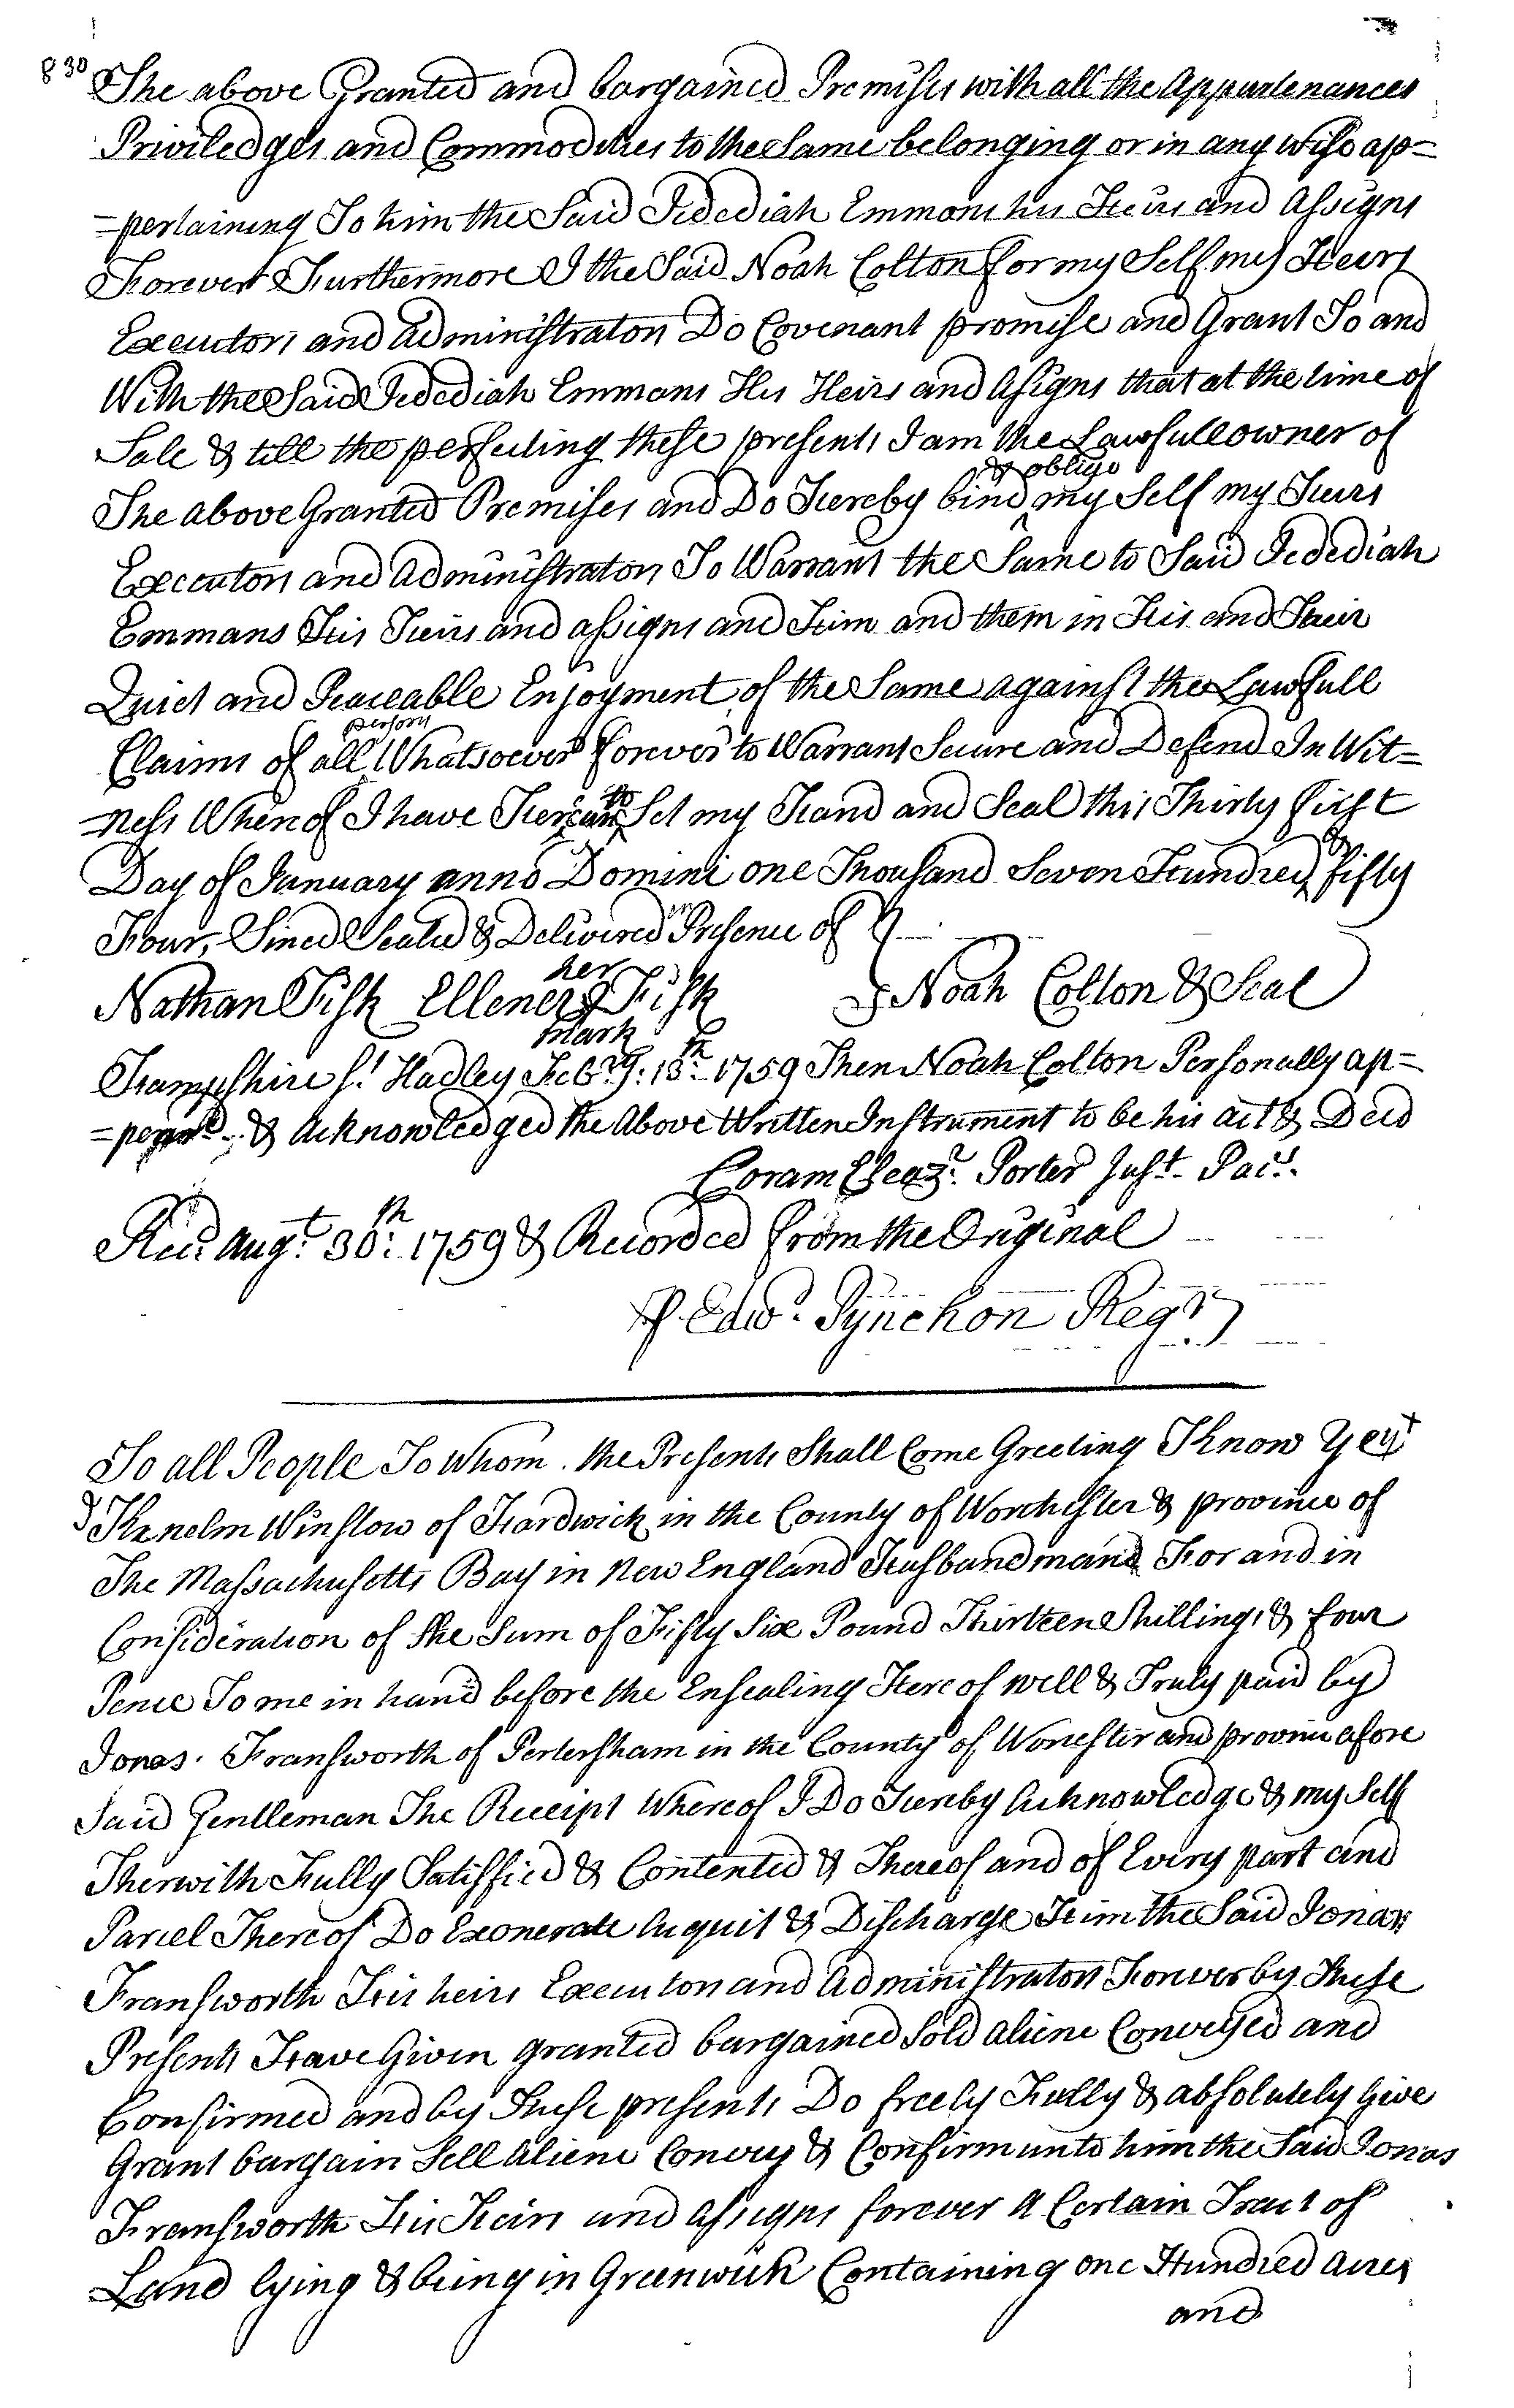 830
The above Granted and bargained Premises with all the Appurtenances
Priviledges and Commodities to the Same belonging or in any wise ap=
=pertaining To him the Said Jedediah Emmons his Heirs and Assigns
Forever Furthermore I the Said Noah Colton for my Self my Heirs
Executors and Administrators Do Covenant promise and Grant To and
With the Said Jedediah Emmans His Heirs and Assigns that at the time of
Sale & till the perfecting these presents I am the Lawfull owner of
& oblige
The above Granted Premises and Do Hereby bind my Self my Heirs
Executors and Administrators To Warrant the Same to Said Jedediah
Emmans His Heirs and assigns and Him and them in His and Their
Quiet and Peaceable Enjoyment of the Same against the Lawfull
persons
Claims of all Whatsoever forever to Warrant Secure and Defend In Wit=
=ness Whereof I have Hereunto Set my Hand and Seal this Thirty first
Day of January anno Domini one Thousand Seven Hundred & fifty
Four, Sined Sealed & Delivered in Presence of
her
Nathan Fisk Ellener Fisk Noah Colton & Seal
mark
Hampshire Ss. Hadley Febry. 13th 1759 Then Noah Colton Personally ap=
=peard & Acknowledged the Above Written Instrument to be his act & Deed
Coram Eleazr. Porter Just. Pacs.
Recd. Augt. 30th. 1759 & Recorded from the Original
P Edwd. Pynchon Regr.
To all People To whom the Presents Shall Come Greeting Know Ye yt
I Kenelm Winslow of Hardwick in the County of Worchester & province of
The Massachusetts Bay in New England Husbandman For and in
Consideration of the Sum of Fifty Six Pound Thirteen Shillings & four
Pence To me in hand before the Ensealing Hereof well & Truly paid by
Jonas Fransworth of Pertersham in the County of Worcester and province afore
Said Gentleman The Receipt Whereof I Do Hereby Acknowledge & my Self
Therwith Fully Satisfied & Contented & Thereof and of Every part and
Parcel Thereof Do Exonerate Acquit & Discharge Him the Said Jonas
Fransworth His heirs Executors and Administrators Forever by These
Presents Have Given granted bargained Sold aliene Conveyed and
Confirmed and by These presents Do freely Fully & absolutely Give
Grant bargain Sell Aliene Convey & Confirm unto him the Said Jonas
Fransworth His Heirs and assigns forever A Certain Tract of
Land lying & being in Greenwich Containing one Hundred acres
and